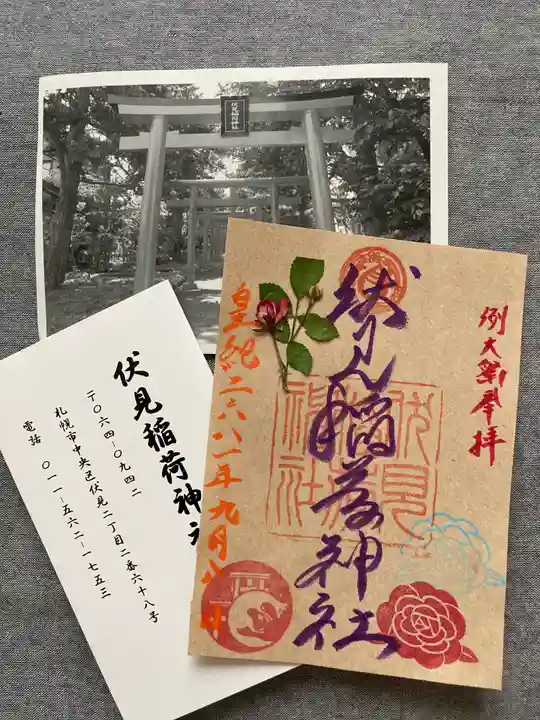 伏見稲荷神社
例大祭奉拝
伏見稲荷神社
伏見稲荷神社
皇紀二六八一年九月
伏見稲荷神
〒〇六四-〇九四二
札幌市中央区伏見二丁目二番六十八号
電話 〇一一-五六二-一七五三